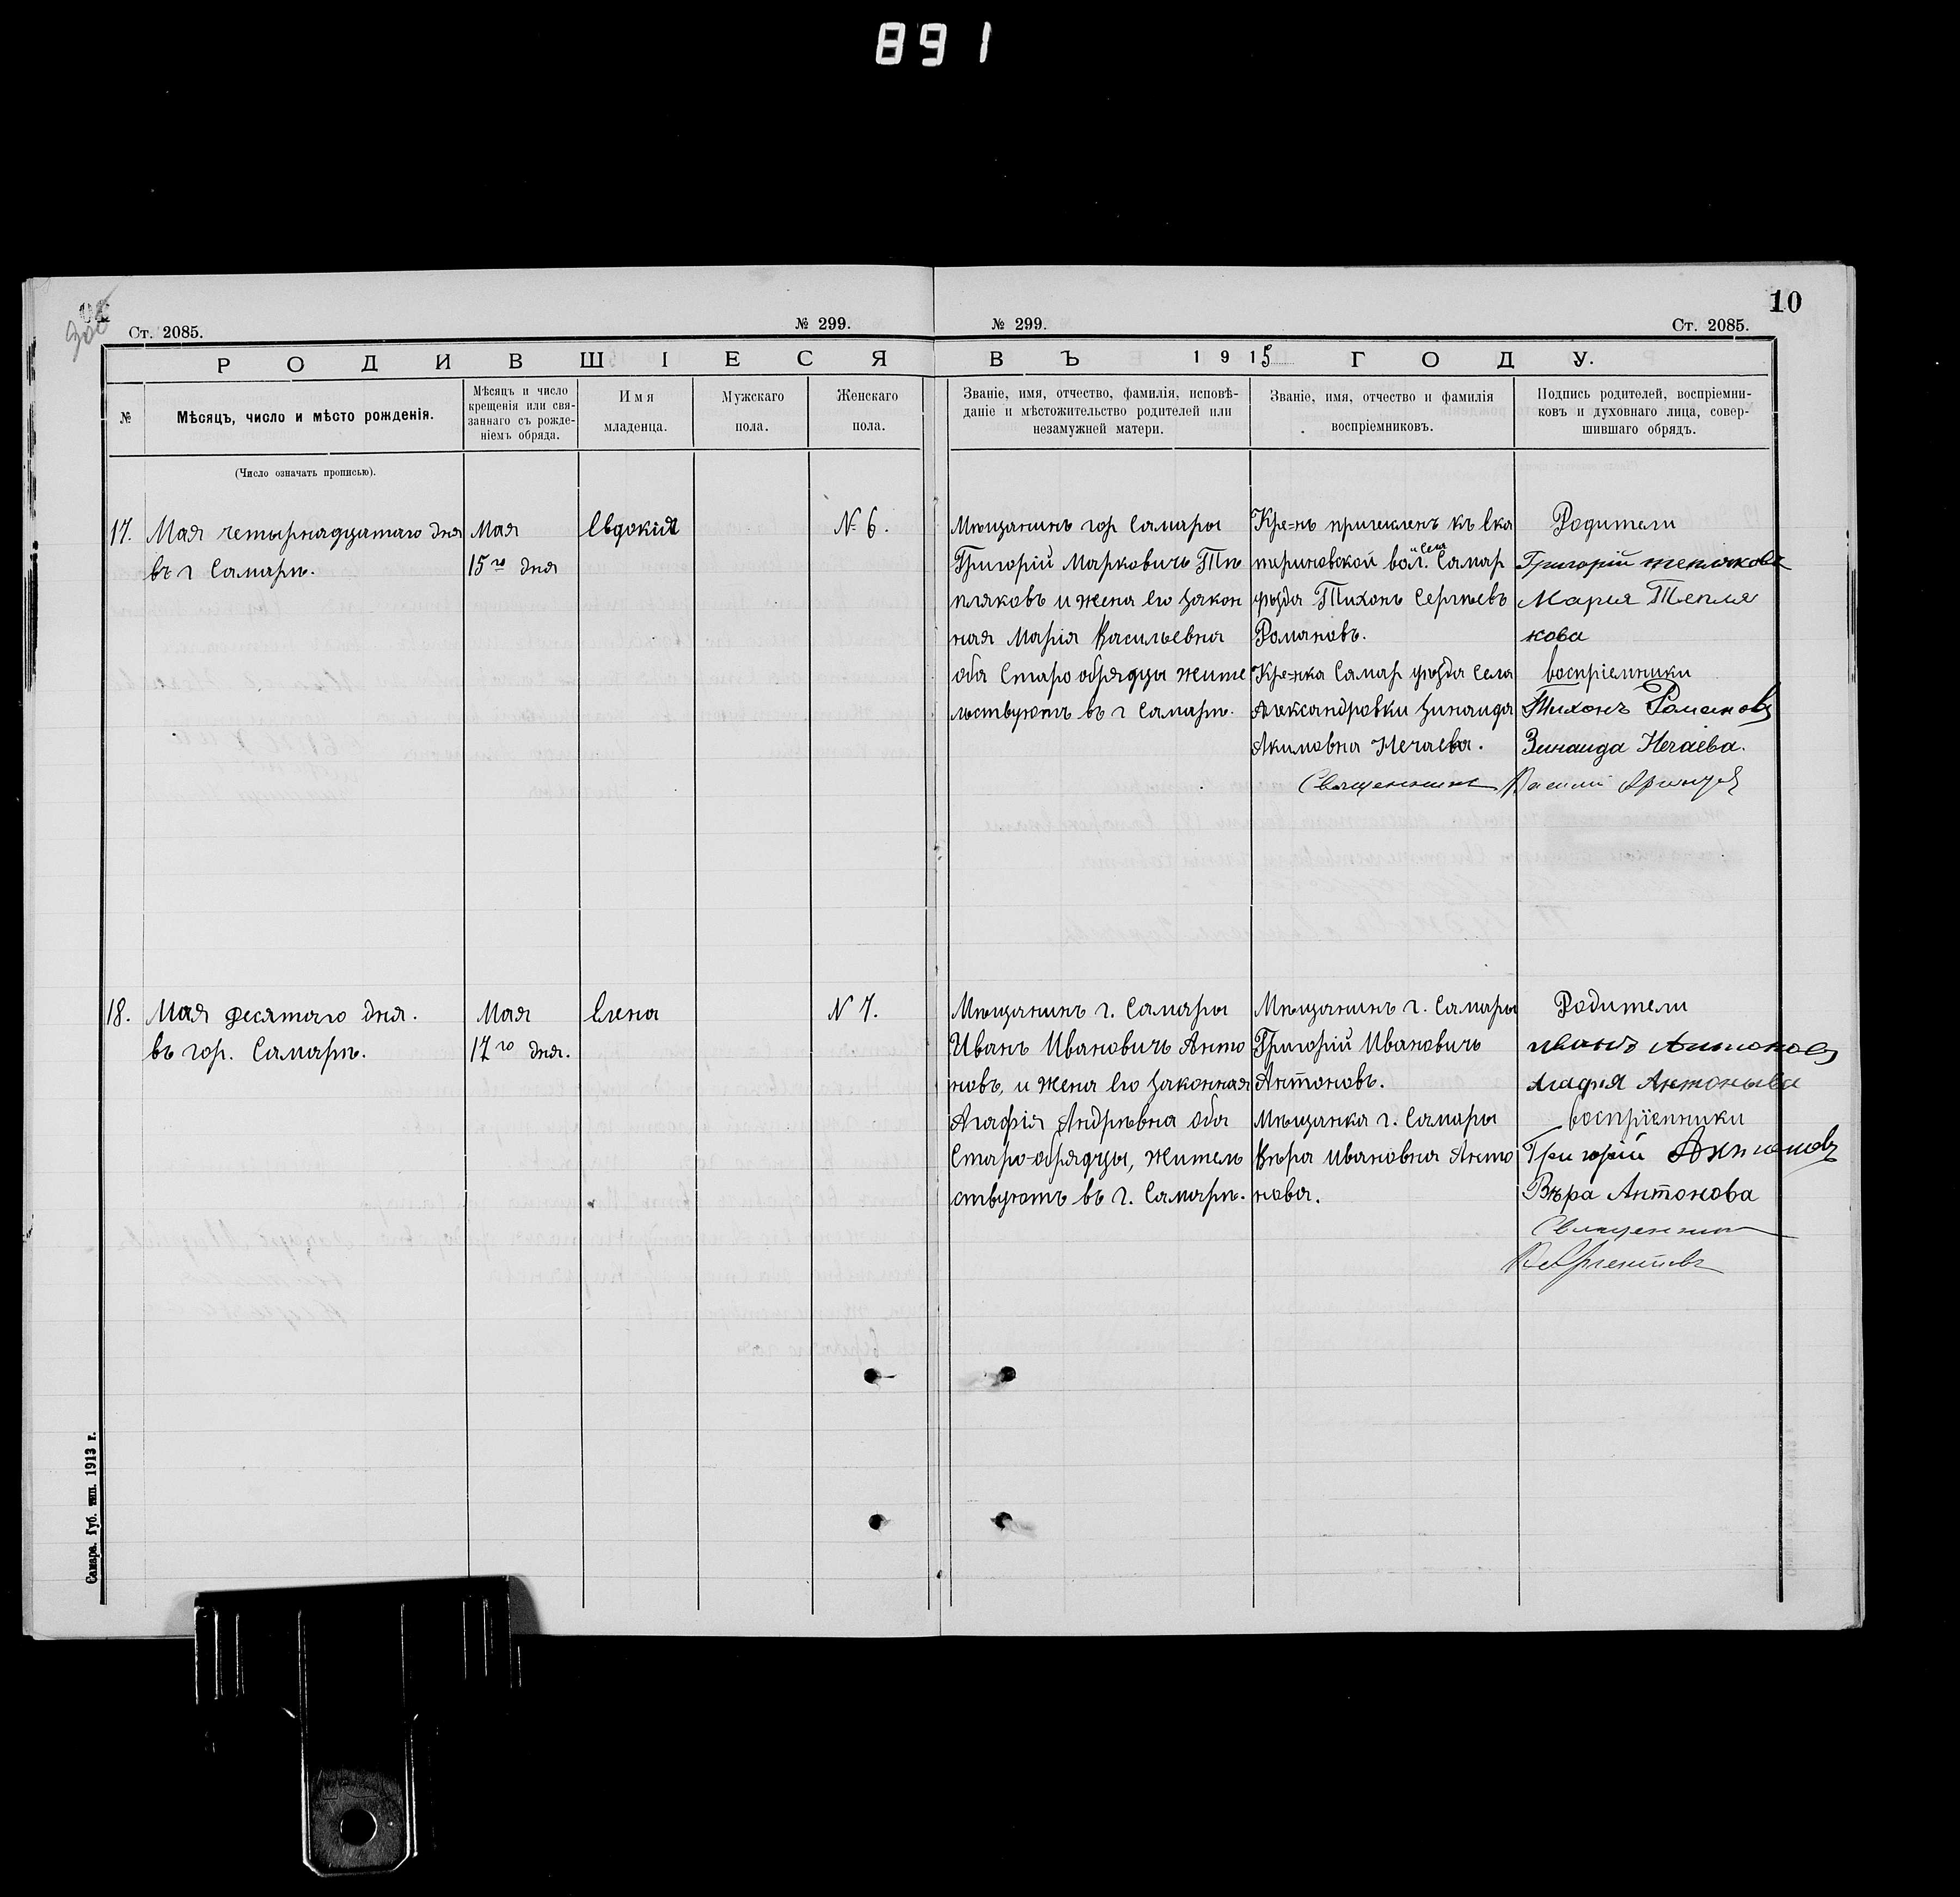 891
10
Ст. 2085.
№ 299.
№ 299.
Ст. 2085.
РОДИВШІЕСЯ ВЪ 1915 ГОДУ.
№
Мѣсяцъ, число и мѣсто рожденія.
Мѣсяцъ и число
крещенія или свя-
заннаго съ рожде-
ніемъ обряда.
Имя
младенца.
Мужскаго
пола.
Женскаго
пола.
Званіе, имя, отчество, фамилія, исповѣ-
даніе и мѣстожительство родителей или
незамужней матери.
Званіе, имя, отчество и фамилія
воспріемниковъ.
Подпись родителей, воспріемни-
ковъ и духовнаго лица, совер-
шившаго обрядъ.
(Число означать прописью).
17.
Мая четырнадцатаго дня
въ г Самарѣ.
Мая
15го дня
Евдокія
№ 6.
Мѣщанинъ гор Самары
Григорій Марковичъ Те
пляковъ и жена его закон
ная Марія Васильевна
оба Старообрядцы жите
льствуютъ въ г Самарѣ.
Кре=нъ причисленъ къ Ека
териновской вол. и села Самар
уѣзда Тихонъ Сергѣевъ
Романовъ.
Кре=нка Самар уѣзда села
Александровки Зинаида
Акимовна Нечаева.
Родители
Григорій тепляковъ
Мария Тепля
кова
воспріемники
Тихонъ Романовъ
Зинаида Нечаева.
Священникъ Василій
18.
Мая десятаго дня.
въ гор. Самарѣ.
Мая
17го дня.
Елена
N 7.
Мѣщанинъ г. Самары
Иванъ Ивановичъ Анто
новъ, и жена его законная
Агафія Андрѣевна оба
Старо-обрядцы, жител
ствуютъ въ г. Самарѣ.
Мѣщанинъ г. Самары
Григорій Ивановичъ
Антоновъ.
Мѣщанка г. Самары
Вѣра Ивановна Анто
нова.
Родители
иванъ Антоновъ
Агафия
воспріемники
Григорій Антоновъ
Вѣра Антонова
Священникъ
Самара. Губ. тип. 1913 г.